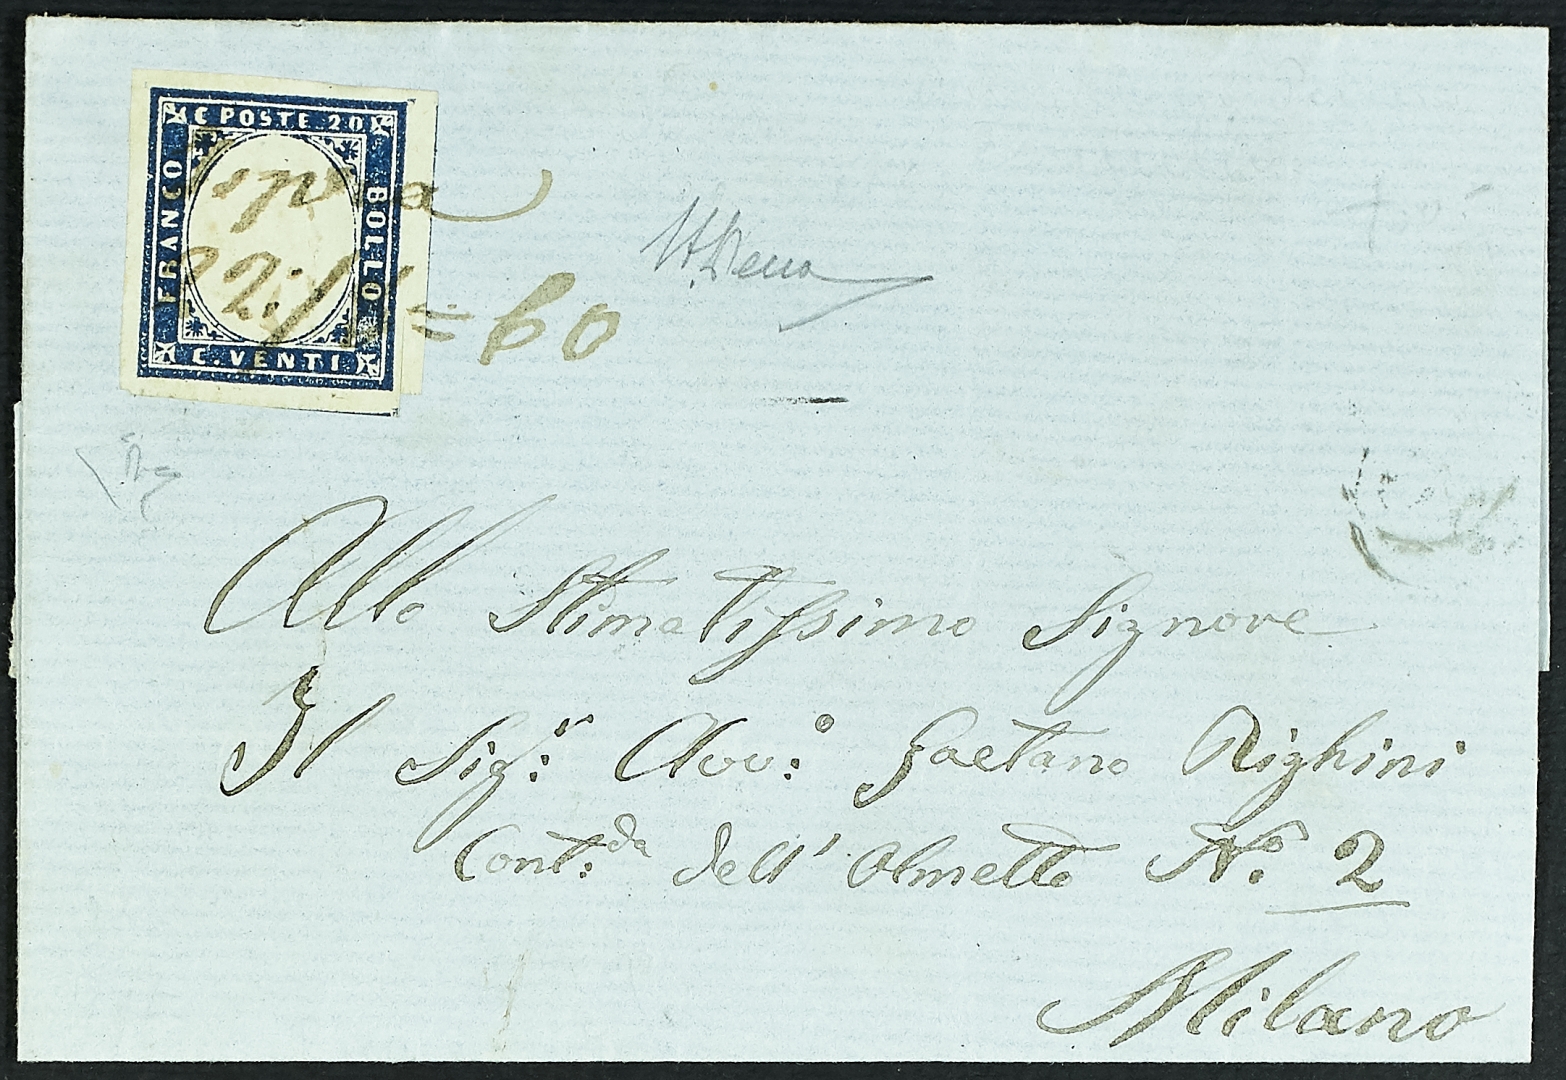 C POSTE 20
FRANCO
BOLLO
C. VENTI
Ispra
=60
Allo Stimatissimo Signore
Il Sigr: Avvo: Gaetano Righini
Cont:da dell' Olmetto No. 2
Milano